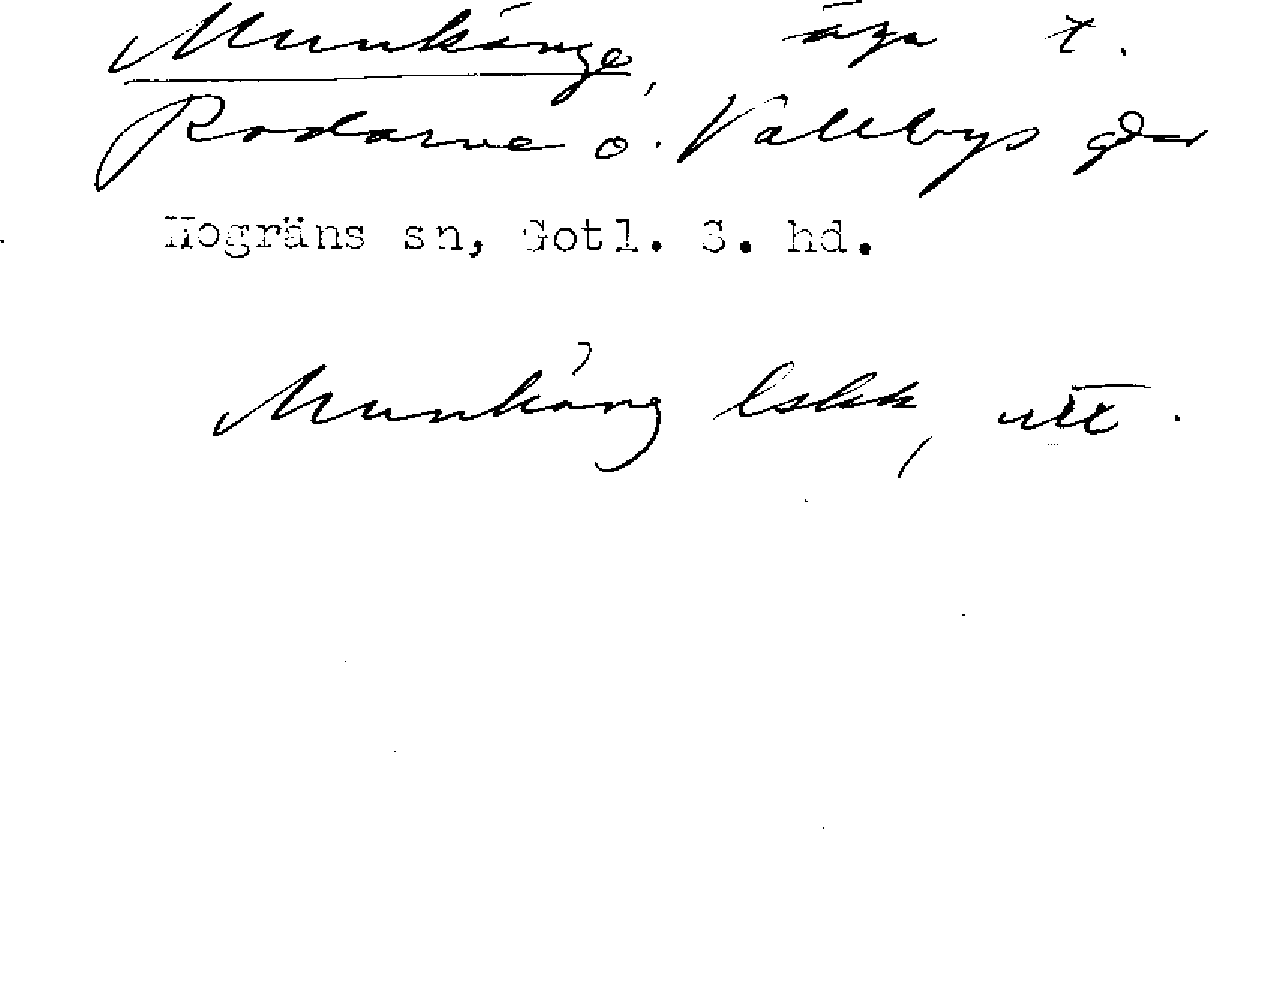 Munkänge, ägn t.
Rodarve o. Vallbys gdar
Hogräns sn, Gotl. S. hd.
Munkäng lskk, utt.